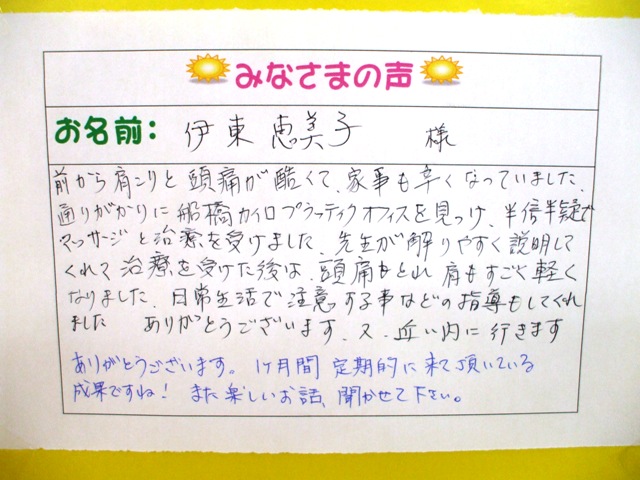 みなさまの声
お名前: 伊東 恵美子 様
前から肩こりと頭痛が酷くて、家事も辛くなっていました。
通りがかりに船橋カイロプラクティクオフィスを見つけ、半信半疑で
マッサージと治療を受けました。先生が解りやすく説明して
くれて治療を受けた後は、頭痛もとれ肩もすごく軽く
なりました。日常生活で注意する事などの指導もしてくれ
ました ありがとうございます。又、近い内に行きます
ありがとうございます。1ヶ月間 定期的に来て頂いている
成果ですね! また楽しいお話、聞かせて下さい。